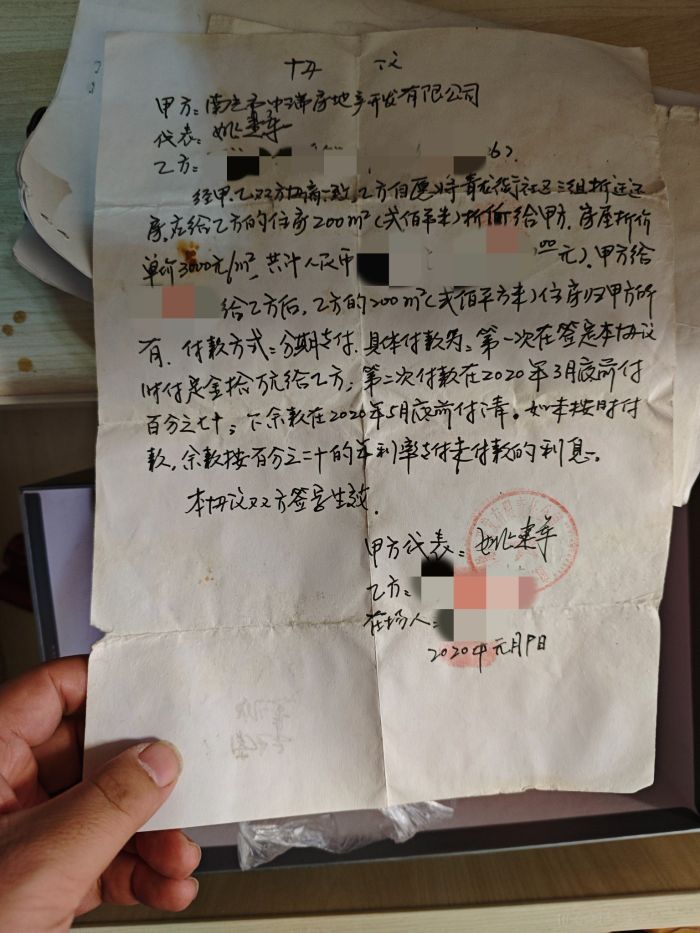 协 议
甲方：南充市中瑞房地产开发有限公司
代表：姚建军
乙方： 6).
经甲、乙双方协商一致，乙方自愿将青龙街社区三组拆迁还
房应给乙方的住房200m²（弍佰平米）折价给甲方，房屋折价
单价3000元/m²，共计人民币 00元），甲方给
给乙方后，乙方的200m²（弍佰平方米）住房归甲方所
有，付款方式：分期支付，具体付款为：第一次在签定本协议
时付定金拾万元给乙方；第二次付款在2020年3月底前付
百分之七十；下余款在2020年5月底前付清。如未按时付
款，余款按百分之二十的年利率支付未付款的利息。
本协议双方签字生效。
甲方代表：姚建军
乙方：
在场人：
2020年元月9日